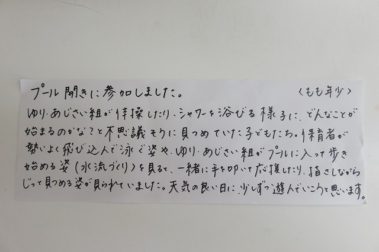 プール開きに参加しました。 〈もも年少〉
ゆり・あじさい組が体操したり、シャワーを浴びる様子に、どんなことが
始まるのかな？と不思議そうに見つめていた子どもたち。保育者が
勢いよく飛び込んで泳ぐ姿や、ゆり・あじさい組がプールに入って歩き
始める姿（水流づくり）を見て、一緒に手を叩いて応援したり、指さしながら
じっと見つめる姿が見られていました。天気の良い日に、少しずつ遊んでいこうと思います。